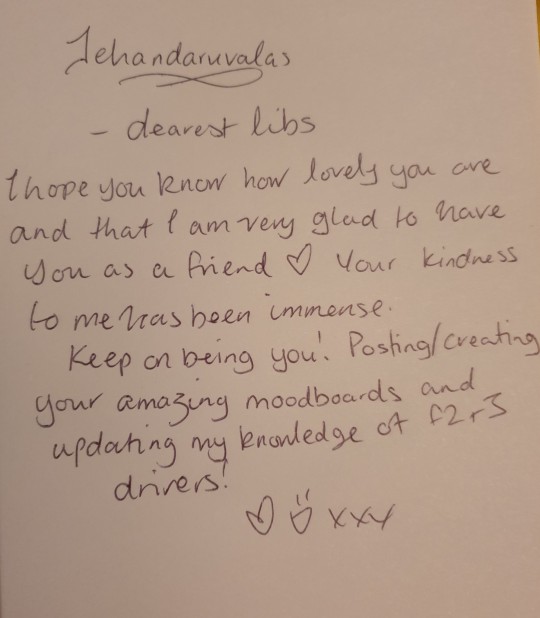 Jehandaruvalas
- dearest libs
I hope you know how lovely you are
and that I am very glad to have
you as a friend ♡ Your kindness
to me has been immense.
Keep on being you! Posting/creating
your amazing moodboards and
updating my knowledge of f2, 3
drivers!
♡ xxx